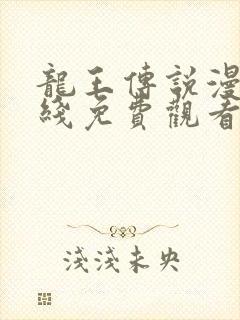 龍王傳說漫
綫免費觀看
淺淺未央